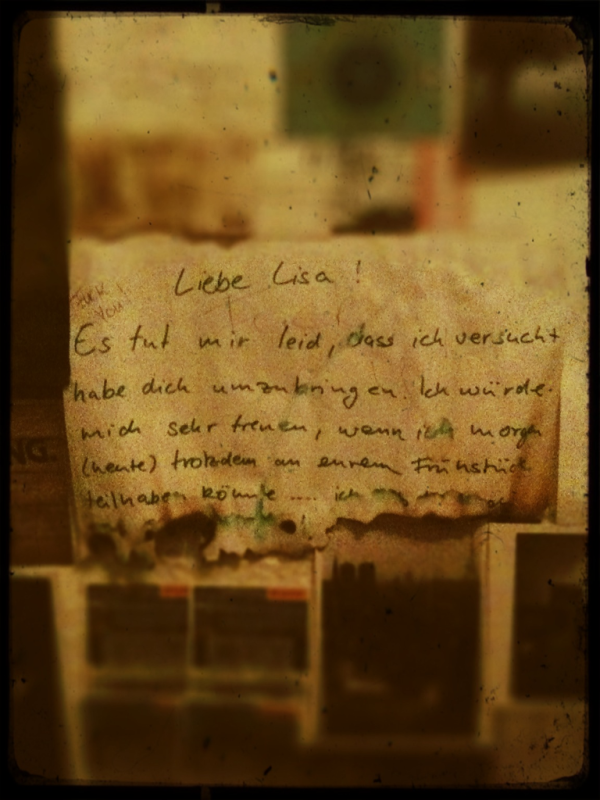 Liebe Lisa!
Fuck
You!
Es tut mir leid, dass ich versucht
habe dich umzubringen. Ich würde
mich sehr freuen, wenn ich morgen
(heute) trotzdem an eurem Frühstück
teilhaben könnte .... ich
NG.